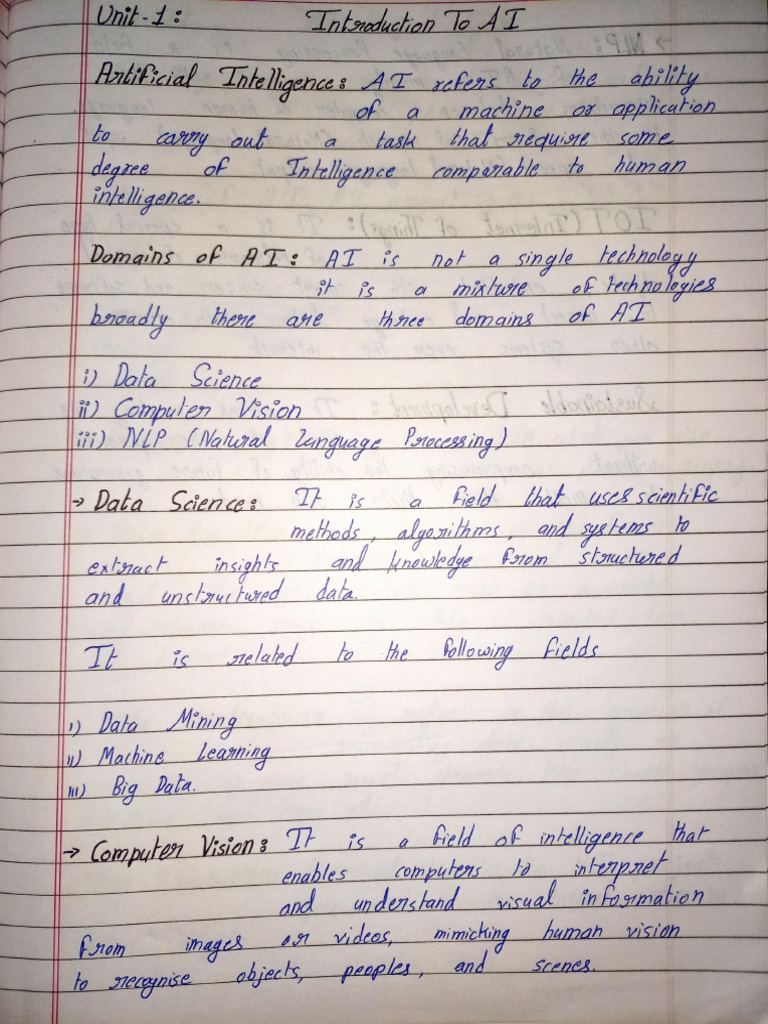 Unit-1: Introduction To AI
Artificial Intelligence: AI refers to the ability
of a machine or application
to carry out a task that require some
degree of Intelligence comparable to human
intelligence.
Domains of AI: AI is not a single technology
it is a mixture of technologies
broadly there are three domains of AI
i) Data Science
ii) Computer Vision
iii) NLP (Natural Language Processing)
→ Data Science: It is a field that uses scientific
methods, algorithms, and systems to
extract insights and knowledge from structured
and unstructured data.
It is related to the following fields
i) Data Mining
ii) Machine Learning
iii) Big Data.
→ Computer Vision: It is a field of intelligence that
enables computers to interpret
and understand visual information
from images or videos, mimicking human vision
to recognise objects, peoples, and scenes.